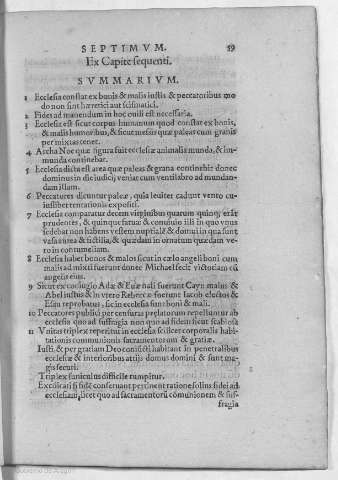 SEPTIMVM. 19
Ex Capite sequenti.
SVMMARIVM.
1 Ecclesia constat ex bonis & malis iustis & peccatoribus mo
do non sint hæretici aut scismatici.
2 Fides ad manendum in hoc ouili est necessaria.
3 Ecclesia est sicut corpus humanum quod constat ex bonis,
& malis humoribus, & sicut messis quæ paleas cum granis
permixtas tenet.
4 Archa Noe quæ figura fuit ecclesiæ animalia munda, & im-
munda continebat.
5 Ecclesia dicta est area quæ paleas & grana continebit donec
dominus in die iudicij veniat cum ventilabro ad mundan-
dam illam.
6 Peccatores dicuntur paleæ, quia leuiter cadunt vento cu-
iuslibet tentationis expositi.
7 Ecclesia comparatur decem virginibus quarum quinq; erāt
prudentes, & quinque fatuæ & conuiuio illi in quo vnus
sedebat non habens vestem nuptialē & domui in qua sunt
vasa aurea & fictilia, & quædam in ornatum quædam ve-
ro in contumeliam.
8 Ecclesia habet bonos & malos sicut in cælo angeli boni cum
malis admixti fuerunt donec Michael fecit victoriam cū
angelis eius.
9 Sicut ex coniugio Adæ & Euæ nati fuerunt Cayn malus &
Abel iustus & in vtero Rebeccæ fuerunt Iacob electus &
Esau reprobatus, sic in ecclesia sunt boni & mali.
10 Peccatores publici per censuras prælatorum repelluntur ab
ecclesia quo ad suffragia non quo ad fidem sicut scabiosa
11 Vnitas triplex reperitur in ecclesia scilicet corporalis habi-
tationis communionis sacramentorum & gratiæ.
Iusti & per gratiam Deo coniuncti habitant in penetralibus
ecclesiæ & interioribus atrijs domus domini & sunt ma-
gis securi.
Triplex funiculus difficile rumpitur.
Excōicati si fidē conseruant pertinent ratione solius fidei ad
ecclesiam, licet quo ad sacramentorū cōmunionem & suf-
fragia
Gobierno de Aragón